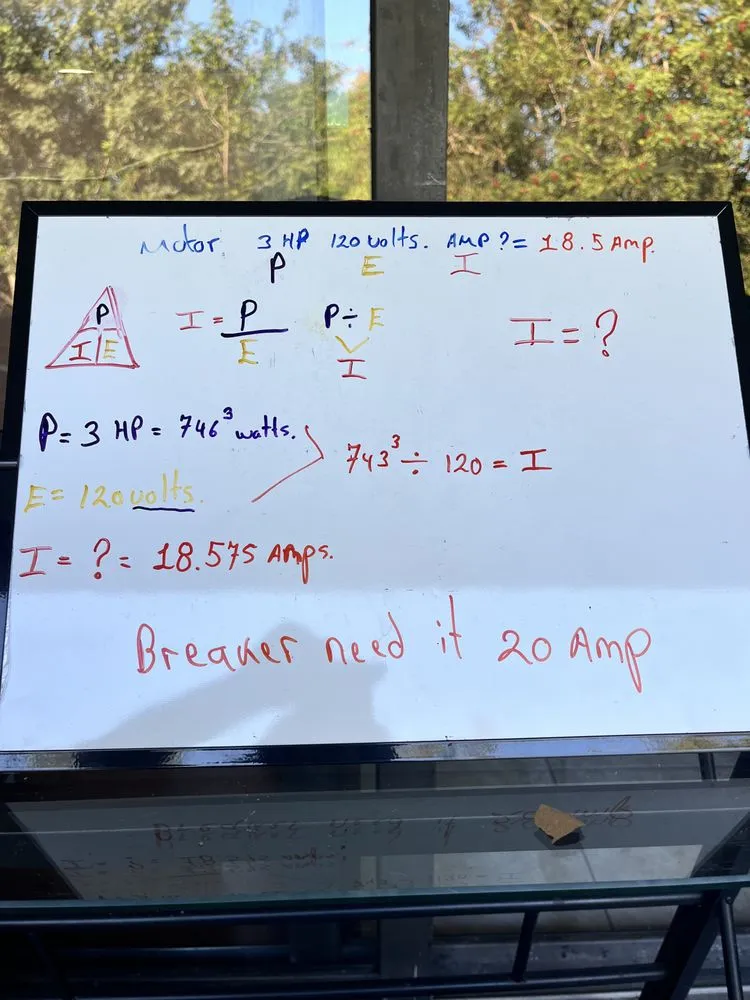 Motor 3 HP 120 volts. AMP ? = 18.5 Amp.
P E I
P
I E
I = P
E
P ÷ E
I
I = ?
P = 3 HP = 746³ watts.
743³ ÷ 120 = I
E = 120 volts.
I = ? = 18.575 Amps.
Breaker need it 20 Amp